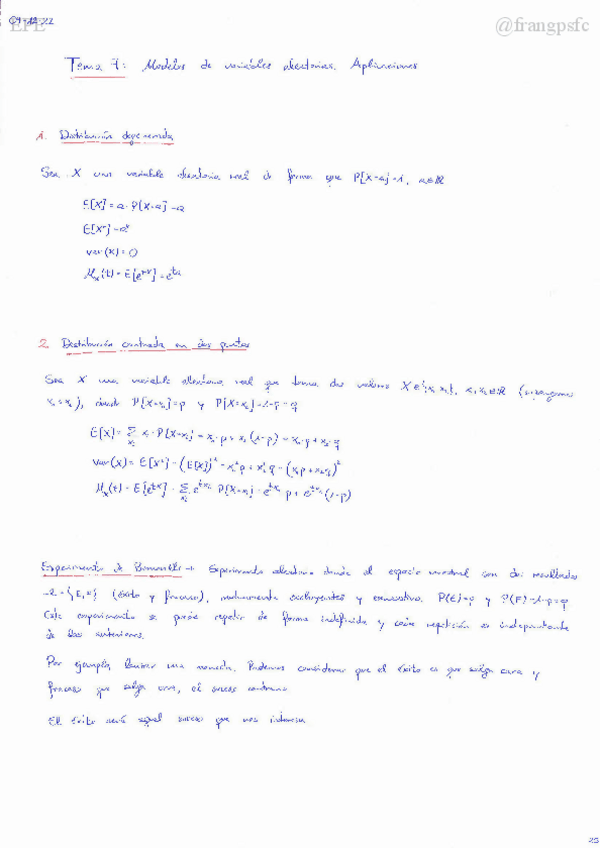 EPE @frangpsfc
Tema 7: Modelos de variables aleatorias. Aplicaciones
1. Distribución degenerada
Sea X una variable aleatoria real de forma que P[X=a]=1, a∈ℝ
E[X]=a·P[X=a]=a
E[Xᵏ]=aᵏ
var(X)=0
Mₓ(t)=E[e^{tX}]=e^{ta}
2. Distribución centrada en dos puntos
Sea X una variable aleatoria real que toma dos valores X∈{x₁,x₂}, x₁,x₂∈ℝ (supongamos
), donde P[X=x₁]=p y P[X=x₂]=1-p=q
E[X]=∑ xᵢ·P[X=xᵢ]=x₁·p+x₂(1-p)=x₁·p+x₂·q
Var(X)=E[X²]-(E[X])²=x₁²p+x₂²q-(x₁p+x₂q)²
Mₓ(t)=E[e^{tX}]=∑ e^{txᵢ} P[X=xᵢ]=e^{tx₁}p+e^{tx₂}(1-p)
Experimento de Bernoulli → Experimento aleatorio donde el espacio muestral son dos resultados
Ω={E,F} (éxito y fracaso), mutuamente excluyentes y exhaustivos. P(E)=p y P(F)=1-p=q
Este experimento se puede repetir de forma indefinida y cada repetición es independiente
de las anteriores.
Por ejemplo, lanzar una moneda. Podemos considerar que el éxito es que salga cara y
fracaso que salga cruz, el suceso contrario.
El éxito será aquel suceso que nos interesa
25